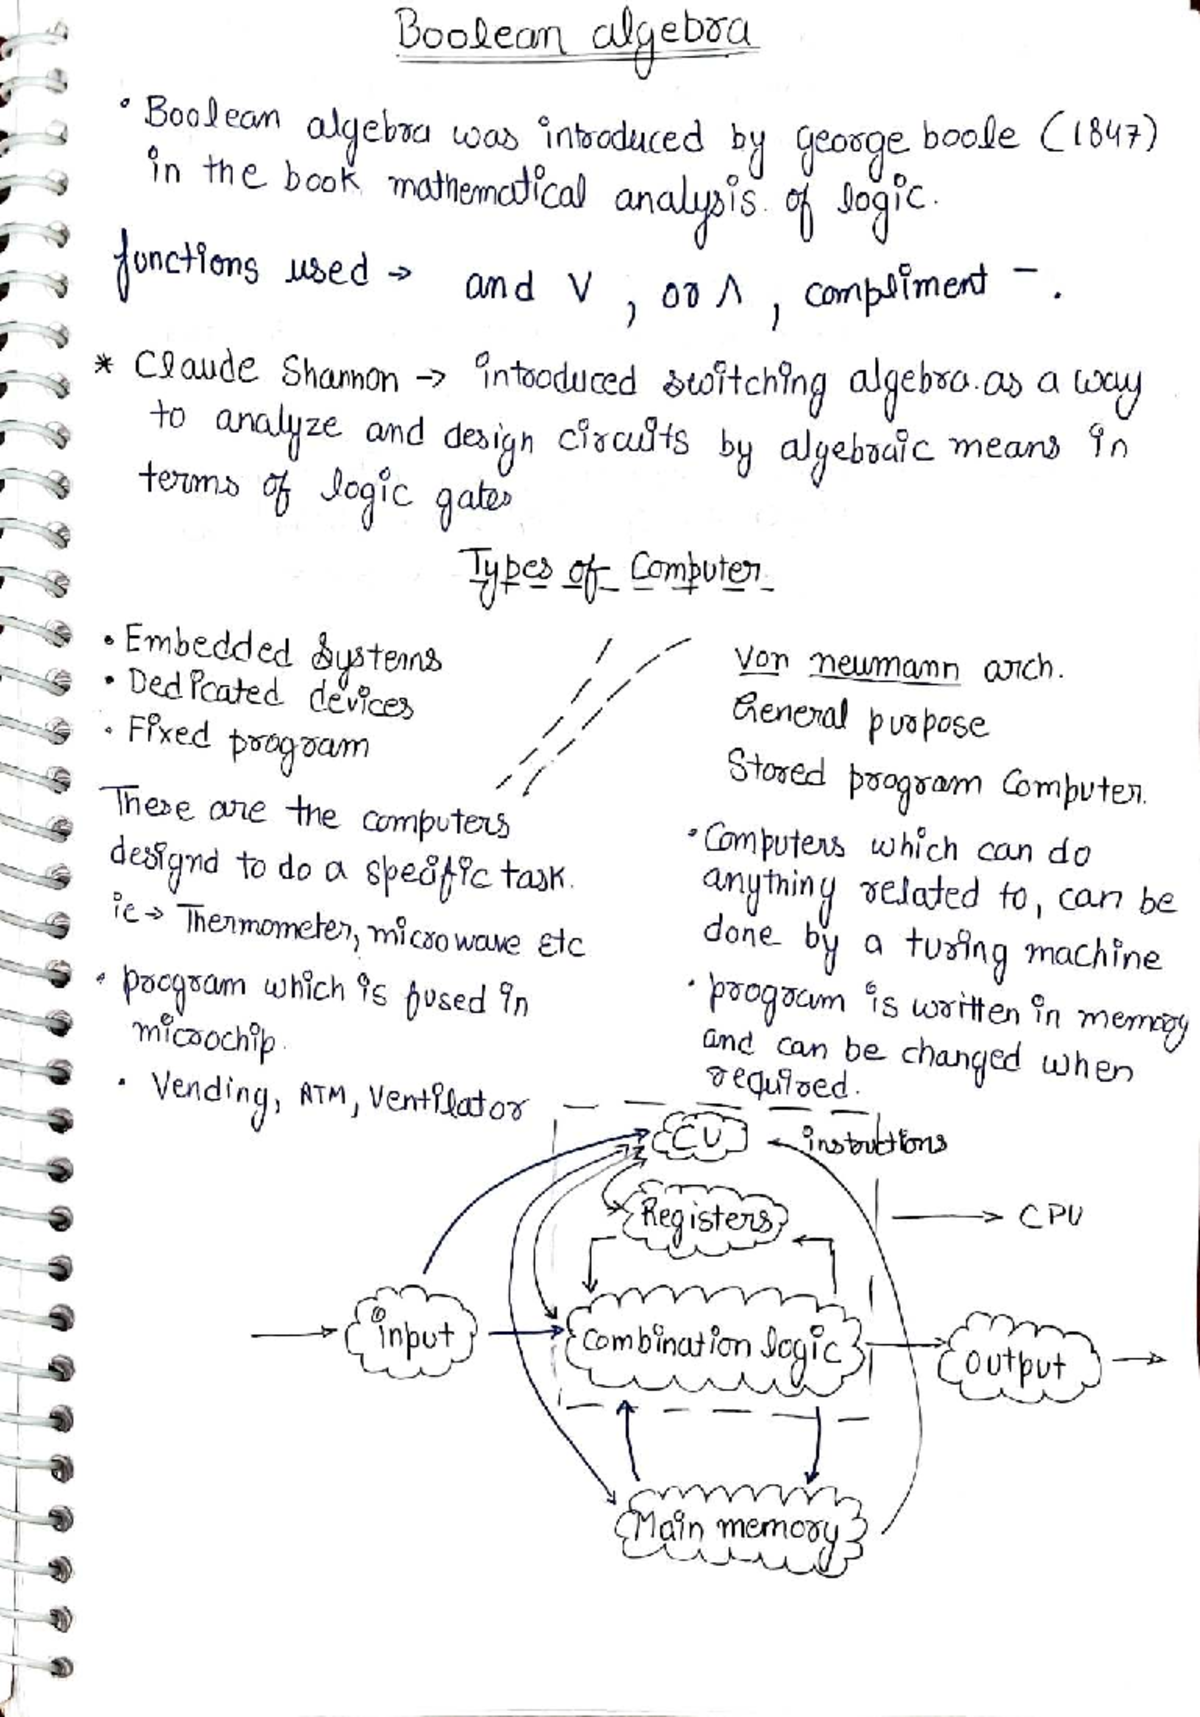 Boolean algebra
• Boolean algebra was introduced by george boole (1847)
in the book mathematical analysis of logic.
functions used → and V , or Λ , compliment ‾ .
* Claude Shannon → introduced switching algebra as a way
to analyze and design circuits by algebraic means in
terms of logic gates
Types of Computer
• Embedded Systems
• Dedicated devices
• Fixed program
These are the computers
designd to do a specific task.
ie → Thermometer, microwave etc
• program which is fused in
microchip.
• Vending, ATM, Ventilator
Von neumann arch.
General purpose
Stored program Computer.
• Computers which can do
anything related to, can be
done by a turing machine
• program is written in memory
and can be changed when
required.
CU
instructions
Registers
CPU
input
Combination logic
output
Main memory